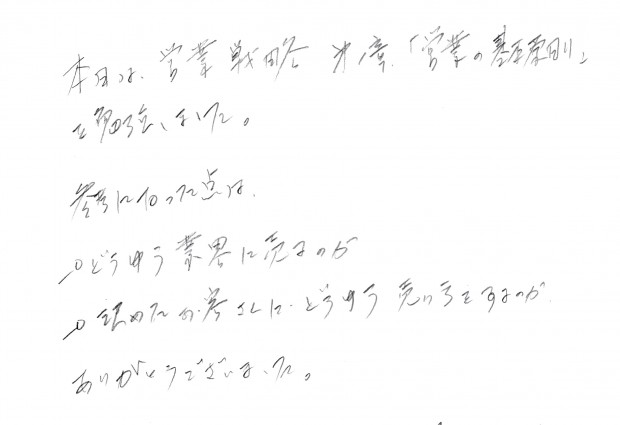 本日は、営業戦略 第1章、「営業の基本原則」
を勉強しました。
参考になった点は、
どうゆう業界に売るのか
決めたお客さんに、どうゆう売り方をするのか
ありがとうございました。